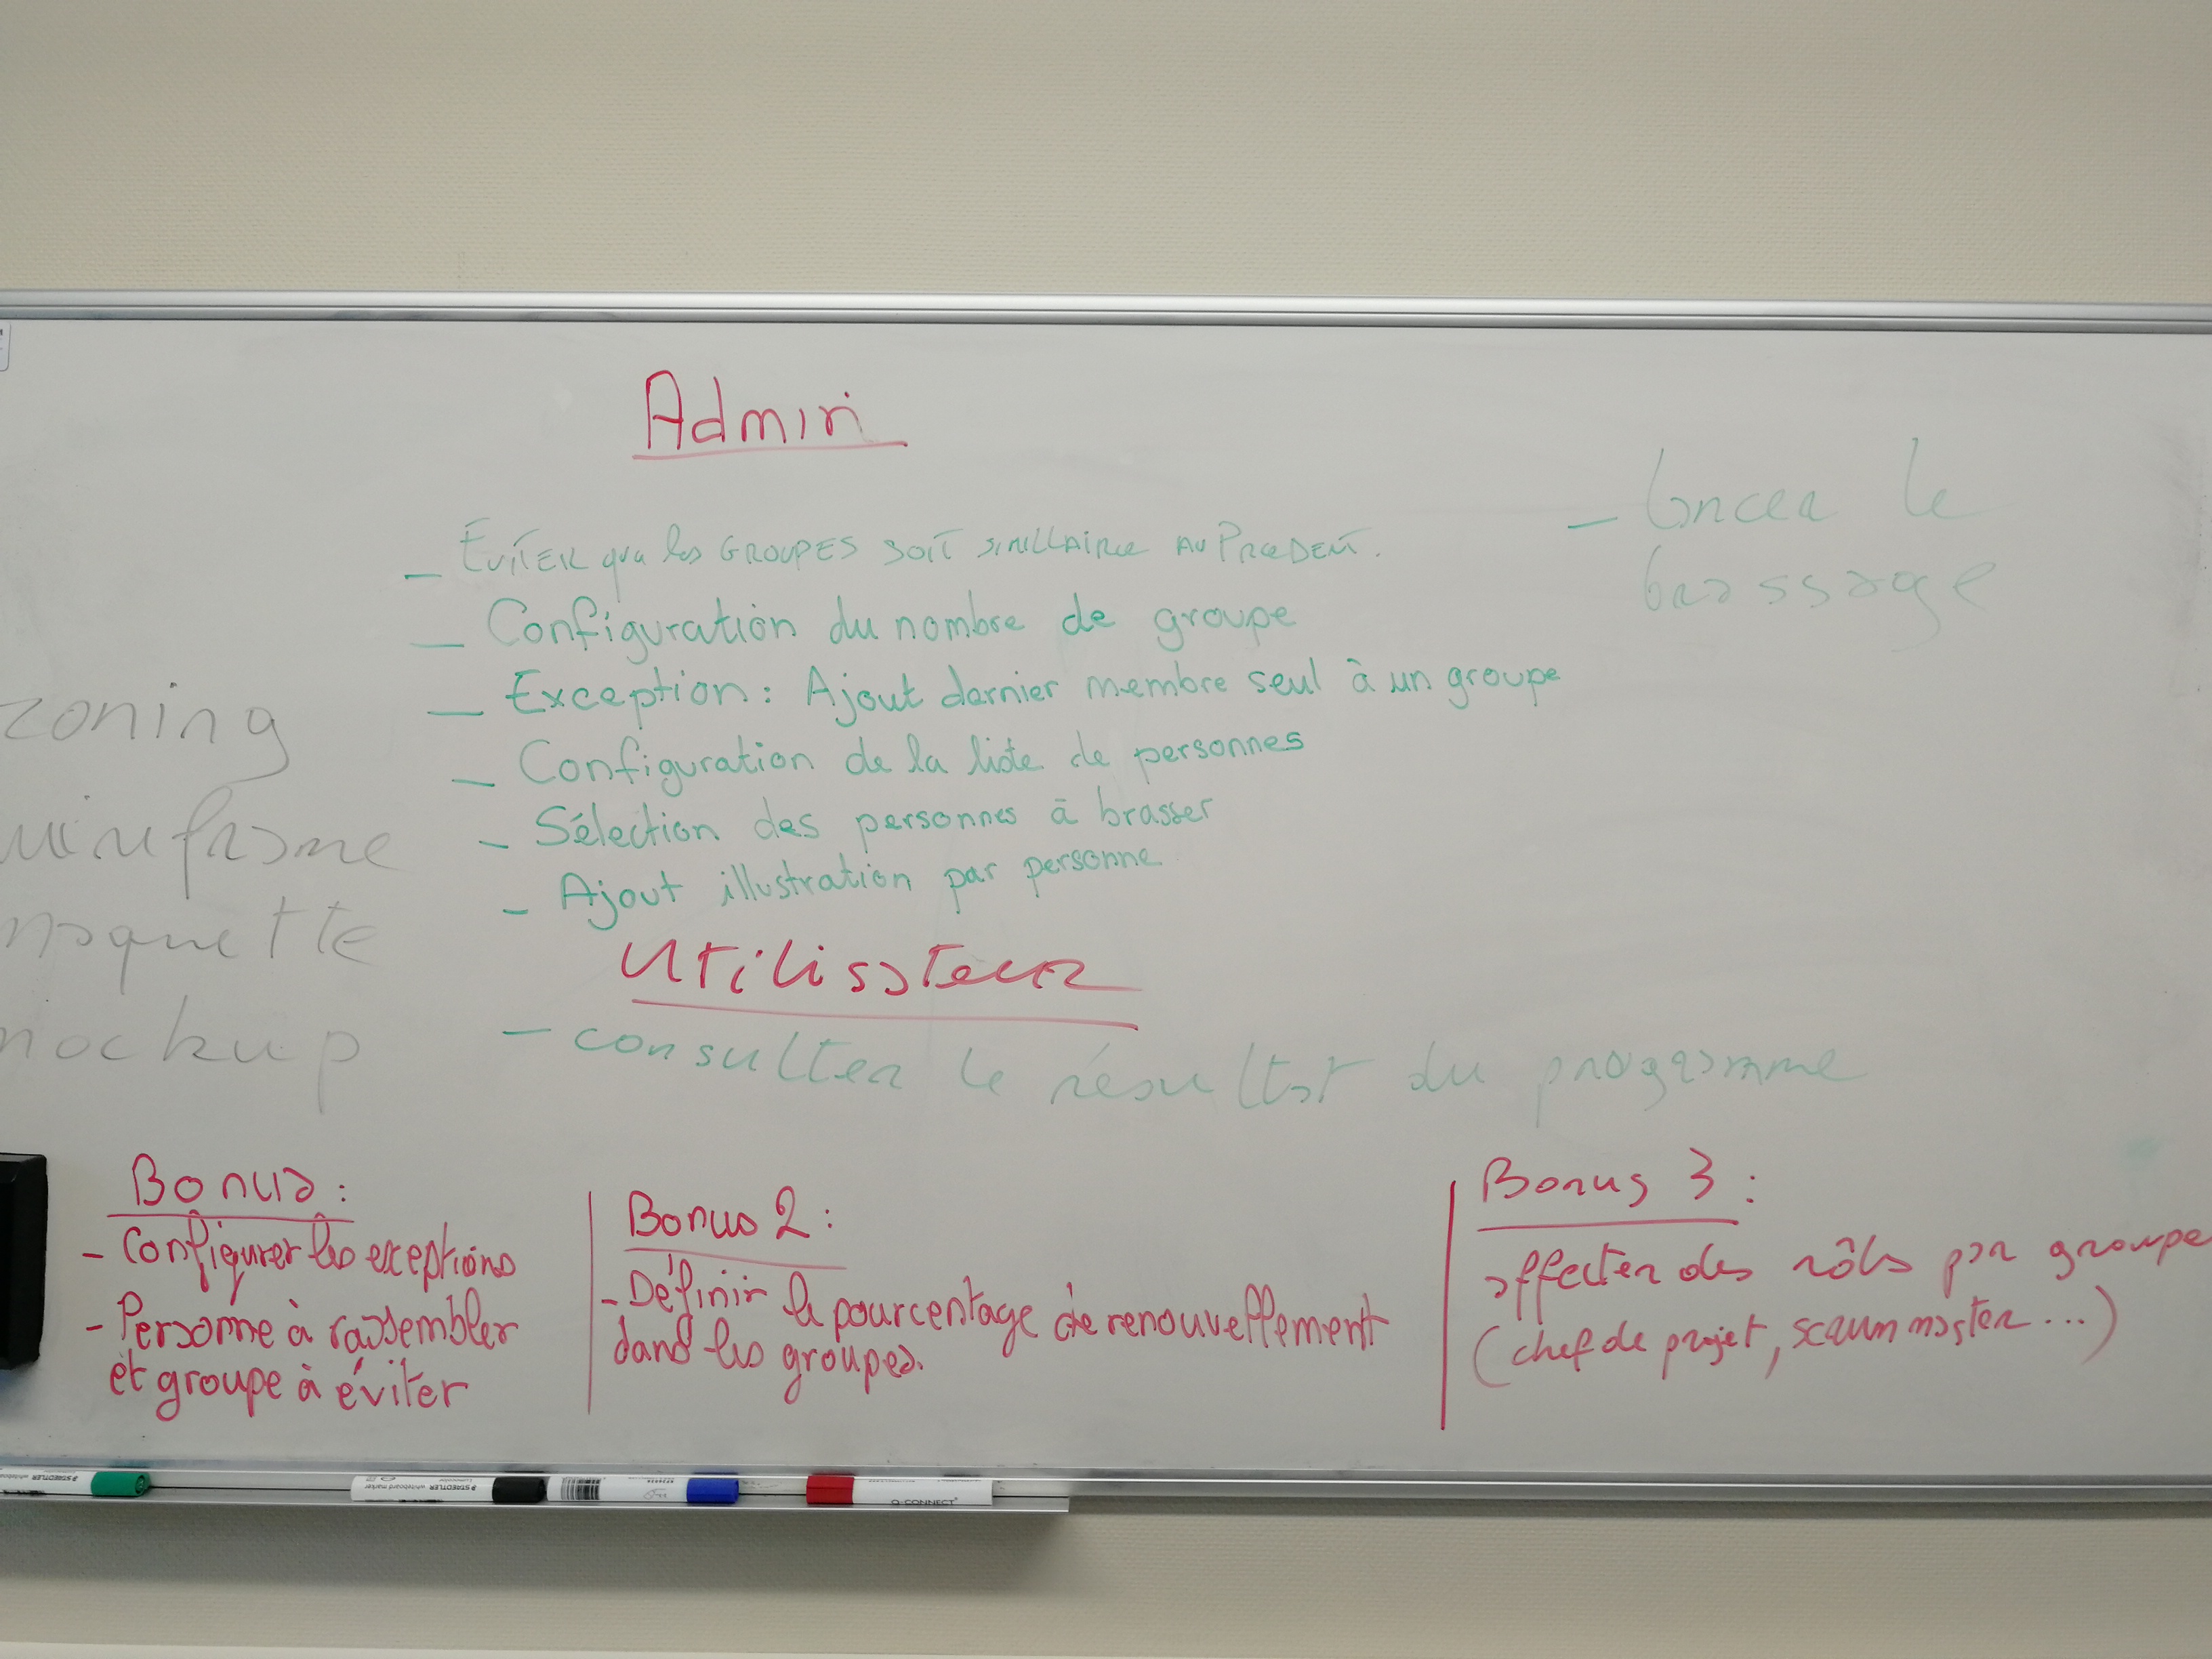 Admin
- EVITER que les GROUPES SOIT SIMILLAIRE AU PRCEDENT.
- Configuration du nombre de groupe
- Exception : Ajout dernier membre seul à un groupe
- Configuration de la liste de personnes
- Sélection des personnes à brasser
- Ajout illustration par personne
- lancer le
brassage
zoning
wireframe
maquette
mockup
Utilisateur
- consulter le résultat du programme
Bonus :
- Configurer les exceptions
- Personne à rassembler
et groupe à éviter
Bonus 2 :
- Définir le pourcentage de renouvellement
dans les groupes.
Bonus 3 :
affecter des rôles par groupe
(chef de projet, scrum master ...)
STAEDTLER
STAEDTLER whiteboard marker
Q-CONNECT